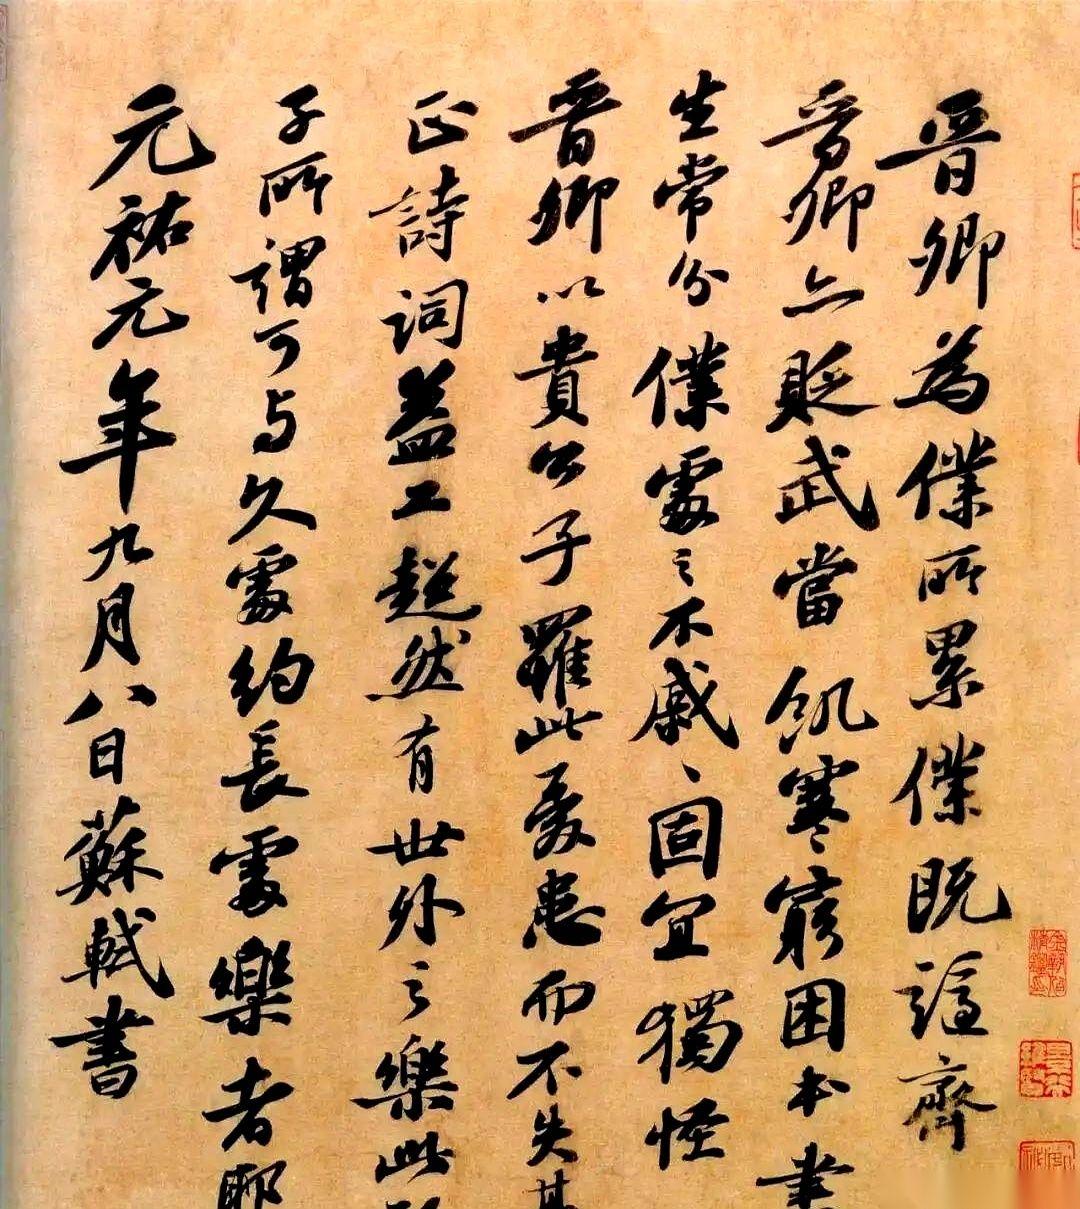 晉卿為僕所累僕既謫齊
晉卿亦貶武當飢寒窮困本書
生常分僕處之不戚戚固宜獨怪
晉卿以貴公子罹此憂患而不失其
正詩詞益工超然有世外之樂此
子所謂可與久處約長處樂者耶
元祐元年九月八日蘇軾書